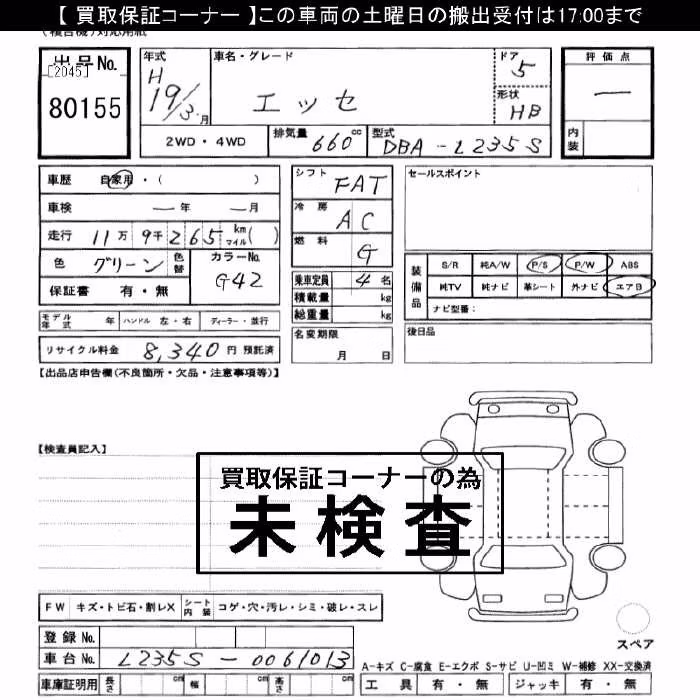 【 買取保証コーナー 】この車両の土曜日の搬出受付は17:00まで
出品No.
[2045]
80155
年式
H
19/3月
車名・グレード
エッセ
ドア
5
形状
HB
評価点
一
内装
2WD・4WD
排気量 660 cc
型式 DBA-L235S
車歴 自家用・( )
車検 ー年 ー月
走行 11万9千265 km マイル( )
色 グリーン 色替 カラーNo. G42
保証書 有・無
シフト FAT
冷房 AC
燃料 G
乗車定員 4名
積載量 kg
総重量 kg
セールスポイント
装備品
S/R 純A/W P/S P/W ABS
純TV 純ナビ 革シート 外ナビ エアB
ナビ型番:
モデル年式 年 ハンドル 左・右 ディーラー・並行
リサイクル料金 8,340円 預託済
名変期限
月 日
後日品
【出品店申告欄(不良箇所・欠品・注意事項等)】
【検査員記入】
買取保証コーナーの為
未検査
FW キズ・トビ石・割レX シート内装 コゲ・穴・汚レ・シミ・破レ・スレ
スペア
登録No.
車台No. L235S-0061013
A-キズ C-腐食 E-エクボ S-サビ U-凹ミ W-補修 XX-交換済
車庫証明用 長さ cm 幅 cm 高さ cm
工具 有・無 ジャッキ 有・無